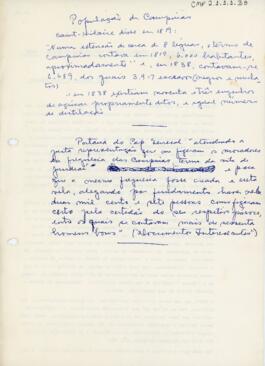 CMP 2.1.2.2.38
População de Campinas
Saint-Hilaire disse em 1819:
"Numa extensão de cerca de 8 leguas, o termo de
Campinas contava em 1819, 6.000 habitantes,
aproximadamente" e, em 1838, contavam-se
6.689, dos quais 3.917 escravos (negros e mula
tos)
em 1838 existiam noventa e três engenhos
de açúcar propriamente ditos, e igual numero
de distilação
Portaria do Cap. General "atendendo a
justa representação que me fizeram os moradores
da freguesia das Campinas termo da vila de
Jundiaí"
que a mesma freguesia fosse creada e ereta
vila, alegando por fundamento haver nela
duas mil cento e sete pessoas conforme
certo pela certidão do seu respetivo paroco,
entre os quais se contavam mais de sessenta
homens bons" ("Documentos Interessantes")